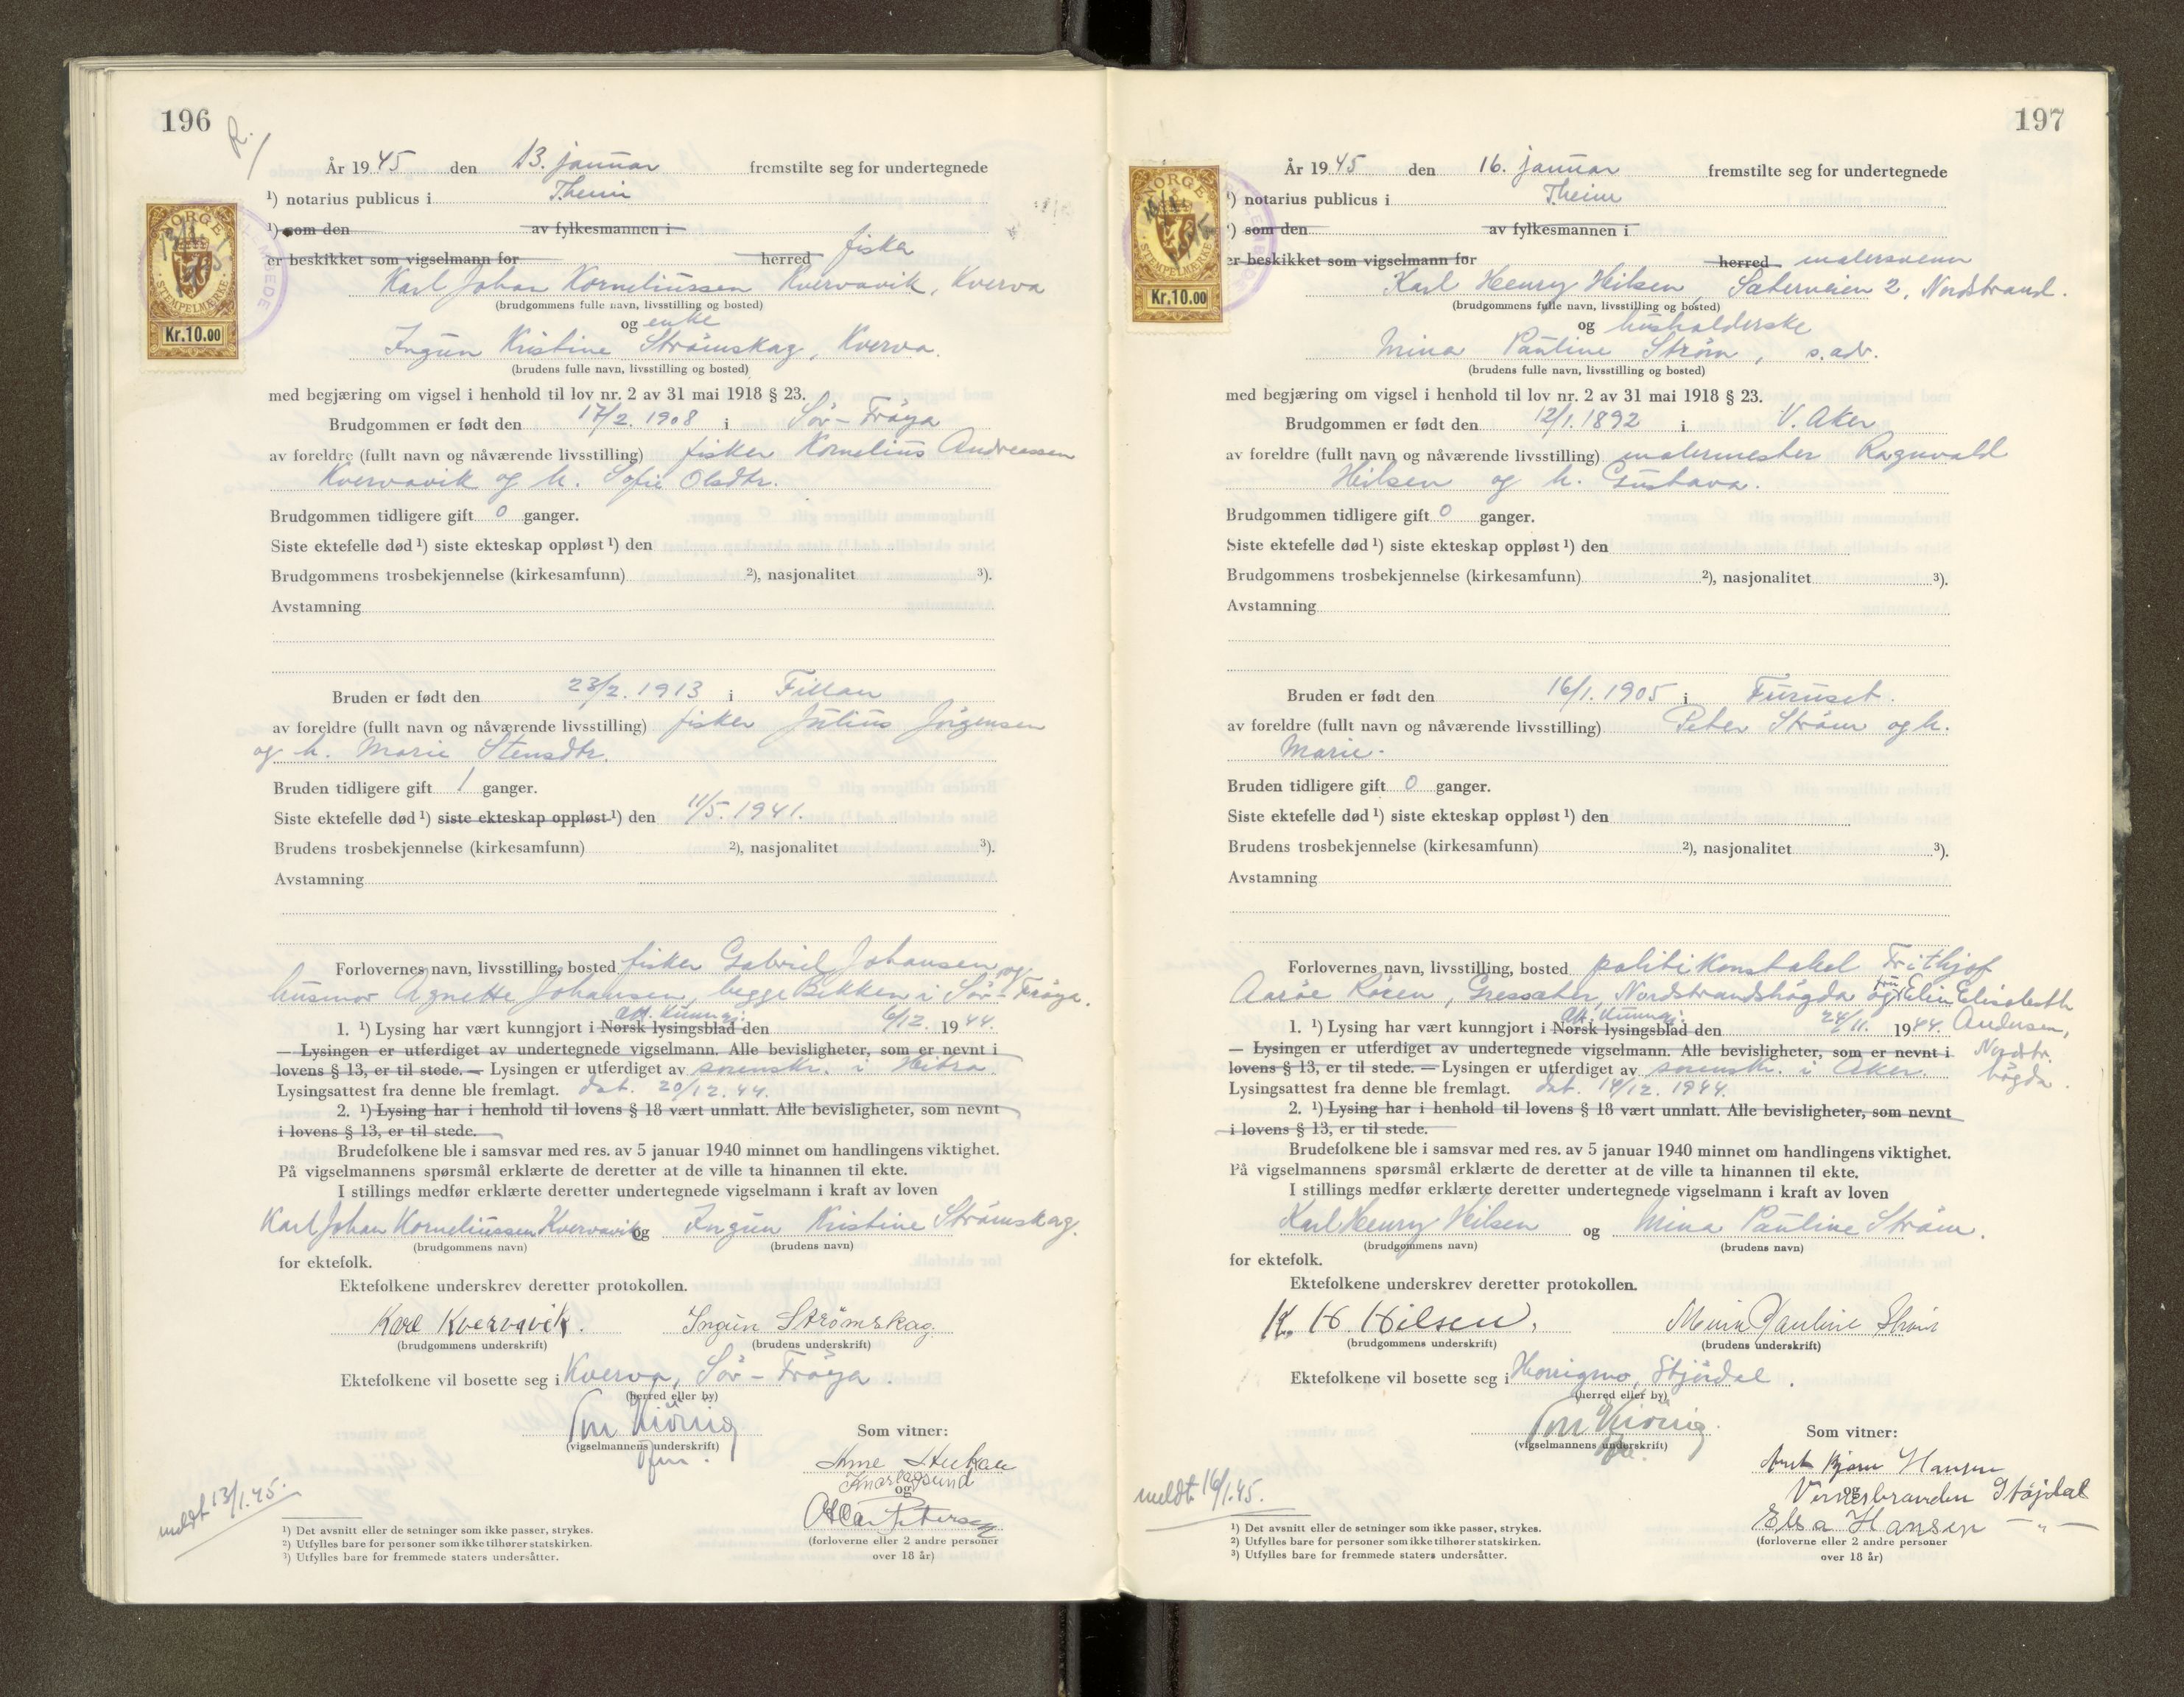 196
R.
År 1945 den 13. januar fremstilte seg for undertegnede
¹) notarius publicus i Theim
¹) som den av fylkesmannen i
er beskikket som vigselmann for herred fisker
Karl Johan Korneliussen Kvervavik, Kverva
(brudgommens fulle navn, livsstilling og bosted)
og enke
Ingun Kristine Strömskag, Kverva.
(brudens fulle navn, livsstilling og bosted)
med begjæring om vigsel i henhold til lov nr. 2 av 31 mai 1918 § 23.
Brudgommen er født den 17/2. 1908 i Sör-Fröya
av foreldre (fullt navn og nåværende livsstilling) fisker Kornelius Andreassen
Kvervavik og h. Sofie Olsdtr.
Brudgommen tidligere gift 0 ganger.
Siste ektefelle død ¹) siste ekteskap oppløst ¹) den
Brudgommens trosbekjennelse (kirkesamfunn) ²), nasjonalitet ³).
Avstamning
Bruden er født den 23/2. 1913 i Fillan
av foreldre (fullt navn og nåværende livsstilling) fisker Julius Jörgensen
og h. Marie Stensdtr.
Bruden tidligere gift 1 ganger.
Siste ektefelle død ¹) siste ekteskap oppløst ¹) den 11/5. 1941.
Brudens trosbekjennelse (kirkesamfunn) ²), nasjonalitet ³).
Avstamning
Forlovernes navn, livsstilling, bosted fisker Gabriel Johansen og
husmor Agnette Johansen, begge Bekken i Sör-Fröya.
att. kunngj.
1. ¹) Lysing har vært kunngjort i Norsk lysingsblad den 6/12. 1944.
— Lysingen er utferdiget av undertegnede vigselmann. Alle bevisligheter, som er nevnt i
lovens § 13, er til stede. — Lysingen er utferdiget av sorenskr. i Hitra
Lysingsattest fra denne ble fremlagt. dat. 20/12. 44.
2. ¹) Lysing har i henhold til lovens § 18 vært unnlatt. Alle bevisligheter, som nevnt
i lovens § 13, er til stede.
Brudefolkene ble i samsvar med res. av 5 januar 1940 minnet om handlingens viktighet.
På vigselmannens spørsmål erklærte de deretter at de ville ta hinannen til ekte.
I stillings medfør erklærte deretter undertegnede vigselmann i kraft av loven
Karl Johan Korneliussen Kvervavik og Ingun Kristine Strömskag.
(brudgommens navn) (brudens navn)
for ektefolk.
Ektefolkene underskrev deretter protokollen.
Karl Kvervavik. Ingun Strömskag.
(brudgommens underskrift) (brudens underskrift)
Ektefolkene vil bosette seg i Kverva, Sör-Fröya.
(herred eller by)
(vigselmannens underskrift)
Som vitner:
Knarlagsund
og
(forloverne eller 2 andre personer
over 18 år)
meldt 13/1.45.
¹) Det avsnitt eller de setninger som ikke passer, strykes.
²) Utfylles bare for personer som ikke tilhører statskirken.
³) Utfylles bare for fremmede staters undersåtter.
NORGE
STEMPELMERKE
Kr.10.00
197
År 1945 den 16. januar fremstilte seg for undertegnede
¹) notarius publicus i Theim
¹) som den av fylkesmannen i
er beskikket som vigselmann for herred malersvenn
Karl Henry Hilsen, Sæterveien 2, Nordstrand.
(brudgommens fulle navn, livsstilling og bosted)
og husholderske
Mina Pauline Ström, s.adr.
(brudens fulle navn, livsstilling og bosted)
med begjæring om vigsel i henhold til lov nr. 2 av 31 mai 1918 § 23.
Brudgommen er født den 12/1. 1892 i V. Aker
av foreldre (fullt navn og nåværende livsstilling) malermester Ragnvald
Hilsen og h. Gustava.
Brudgommen tidligere gift 0 ganger.
Siste ektefelle død ¹) siste ekteskap oppløst ¹) den
Brudgommens trosbekjennelse (kirkesamfunn) ²), nasjonalitet ³).
Avstamning
Bruden er født den 16/1. 1905 i Furuset.
av foreldre (fullt navn og nåværende livsstilling) Peter Ström og h.
Marie.
Bruden tidligere gift 0 ganger.
Siste ektefelle død ¹) siste ekteskap oppløst ¹) den
Brudens trosbekjennelse (kirkesamfunn) ²), nasjonalitet ³).
Avstamning
Forlovernes navn, livsstilling, bosted politikonstabel Frithjof
Aaröe Rören, Gressæter, Nordstrandshögda og fru Elin Elisabeth
Andersen,
Nordstr.
högda.
att. kunngj.
1. ¹) Lysing har vært kunngjort i Norsk lysingsblad den 24/11. 1944.
— Lysingen er utferdiget av undertegnede vigselmann. Alle bevisligheter, som er nevnt i
lovens § 13, er til stede. — Lysingen er utferdiget av sorenskr. i Aker.
Lysingsattest fra denne ble fremlagt. dat. 14/12. 1944.
2. ¹) Lysing har i henhold til lovens § 18 vært unnlatt. Alle bevisligheter, som nevnt
i lovens § 13, er til stede.
Brudefolkene ble i samsvar med res. av 5 januar 1940 minnet om handlingens viktighet.
På vigselmannens spørsmål erklærte de deretter at de ville ta hinannen til ekte.
I stillings medfør erklærte deretter undertegnede vigselmann i kraft av loven
Karl Henry Hilsen og Mina Pauline Ström.
(brudgommens navn) (brudens navn)
for ektefolk.
Ektefolkene underskrev deretter protokollen.
K. H Hilsen. Mina Pauline Ström
(brudgommens underskrift) (brudens underskrift)
Ektefolkene vil bosette seg i Stjördal.
(herred eller by)
(vigselmannens underskrift)
Som vitner:
Bjørn Hansen
og
Elsa Hansen — „ —
(forloverne eller 2 andre personer
over 18 år)
meldt 16/1.45.
¹) Det avsnitt eller de setninger som ikke passer, strykes.
²) Utfylles bare for personer som ikke tilhører statskirken.
³) Utfylles bare for fremmede staters undersåtter.
NORGE
STEMPELMERKE
Kr.10.00